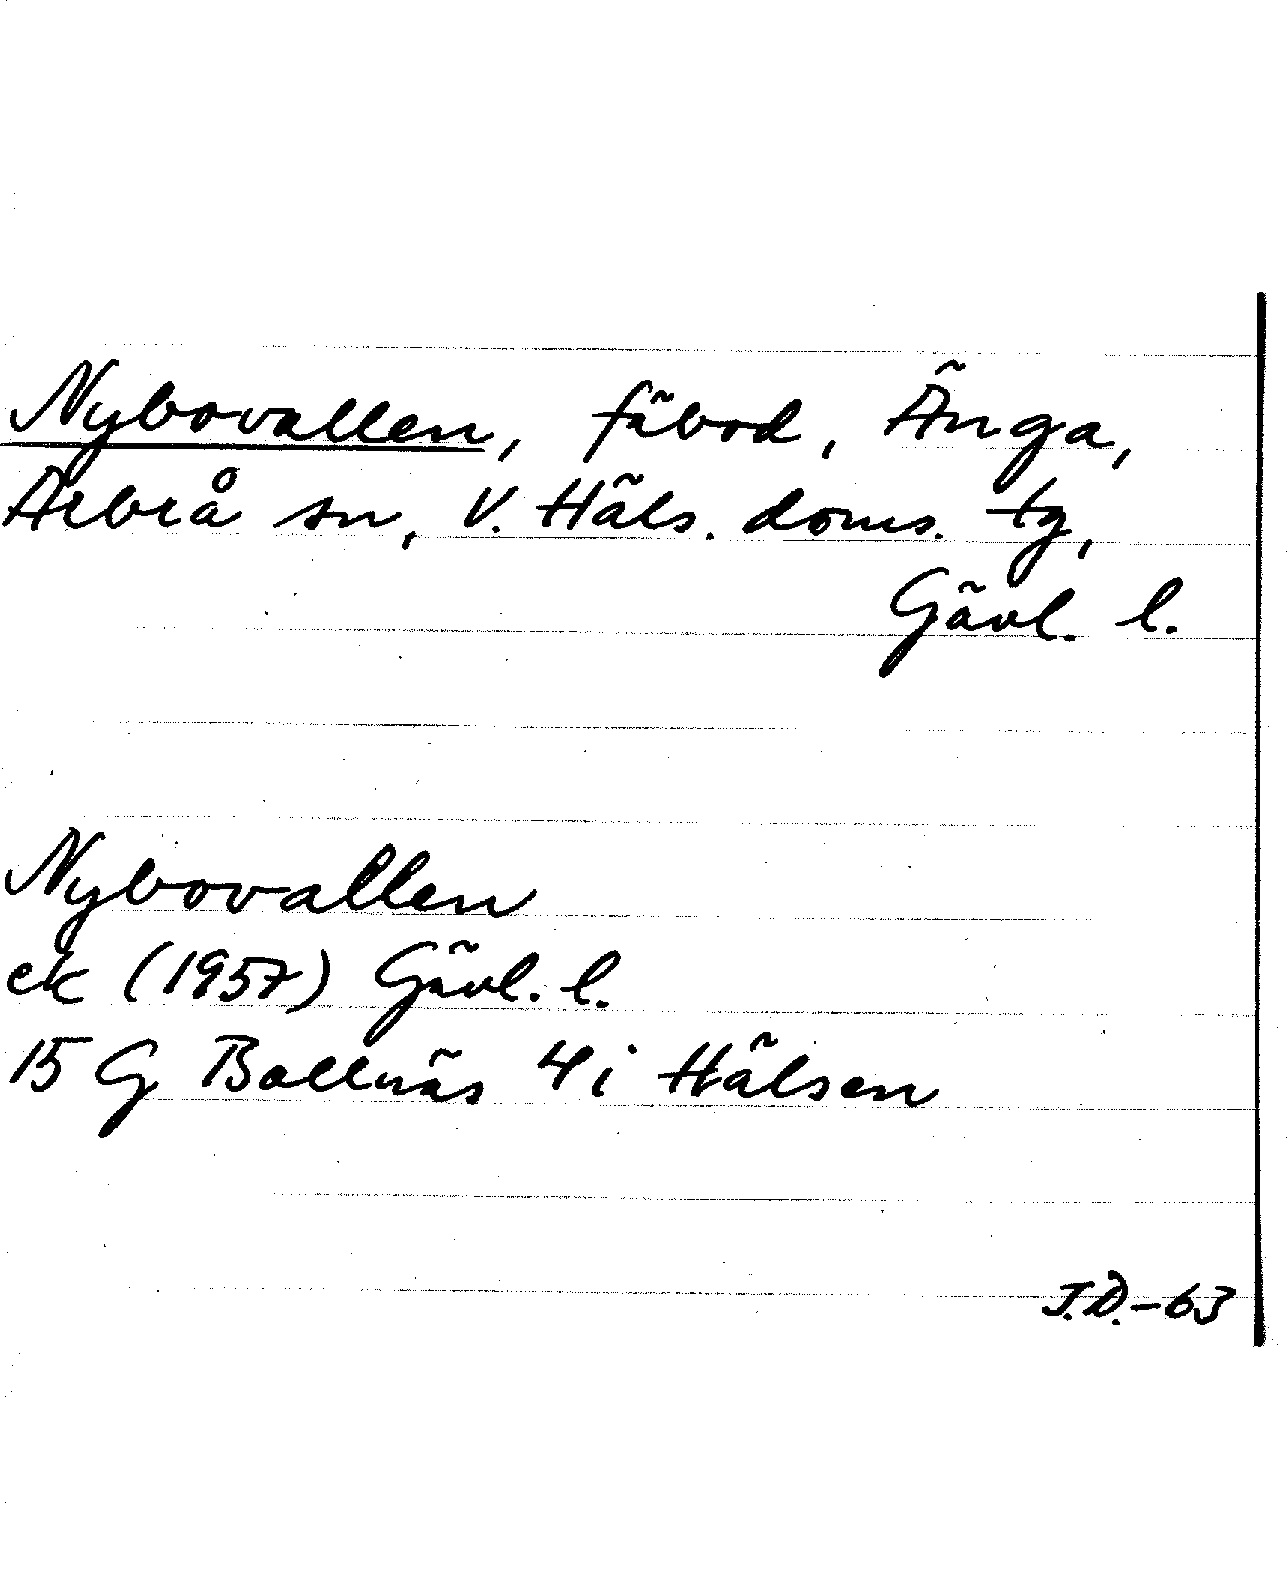 Nybovallen, fäbod, Änga,
Arbrå sn, V. Häls. doms. tg,
Gävl. l.
Nybovallen
ek (1957) Gävl. l.
15 G Bollnäs 4 i Hälsen
J.D.-63